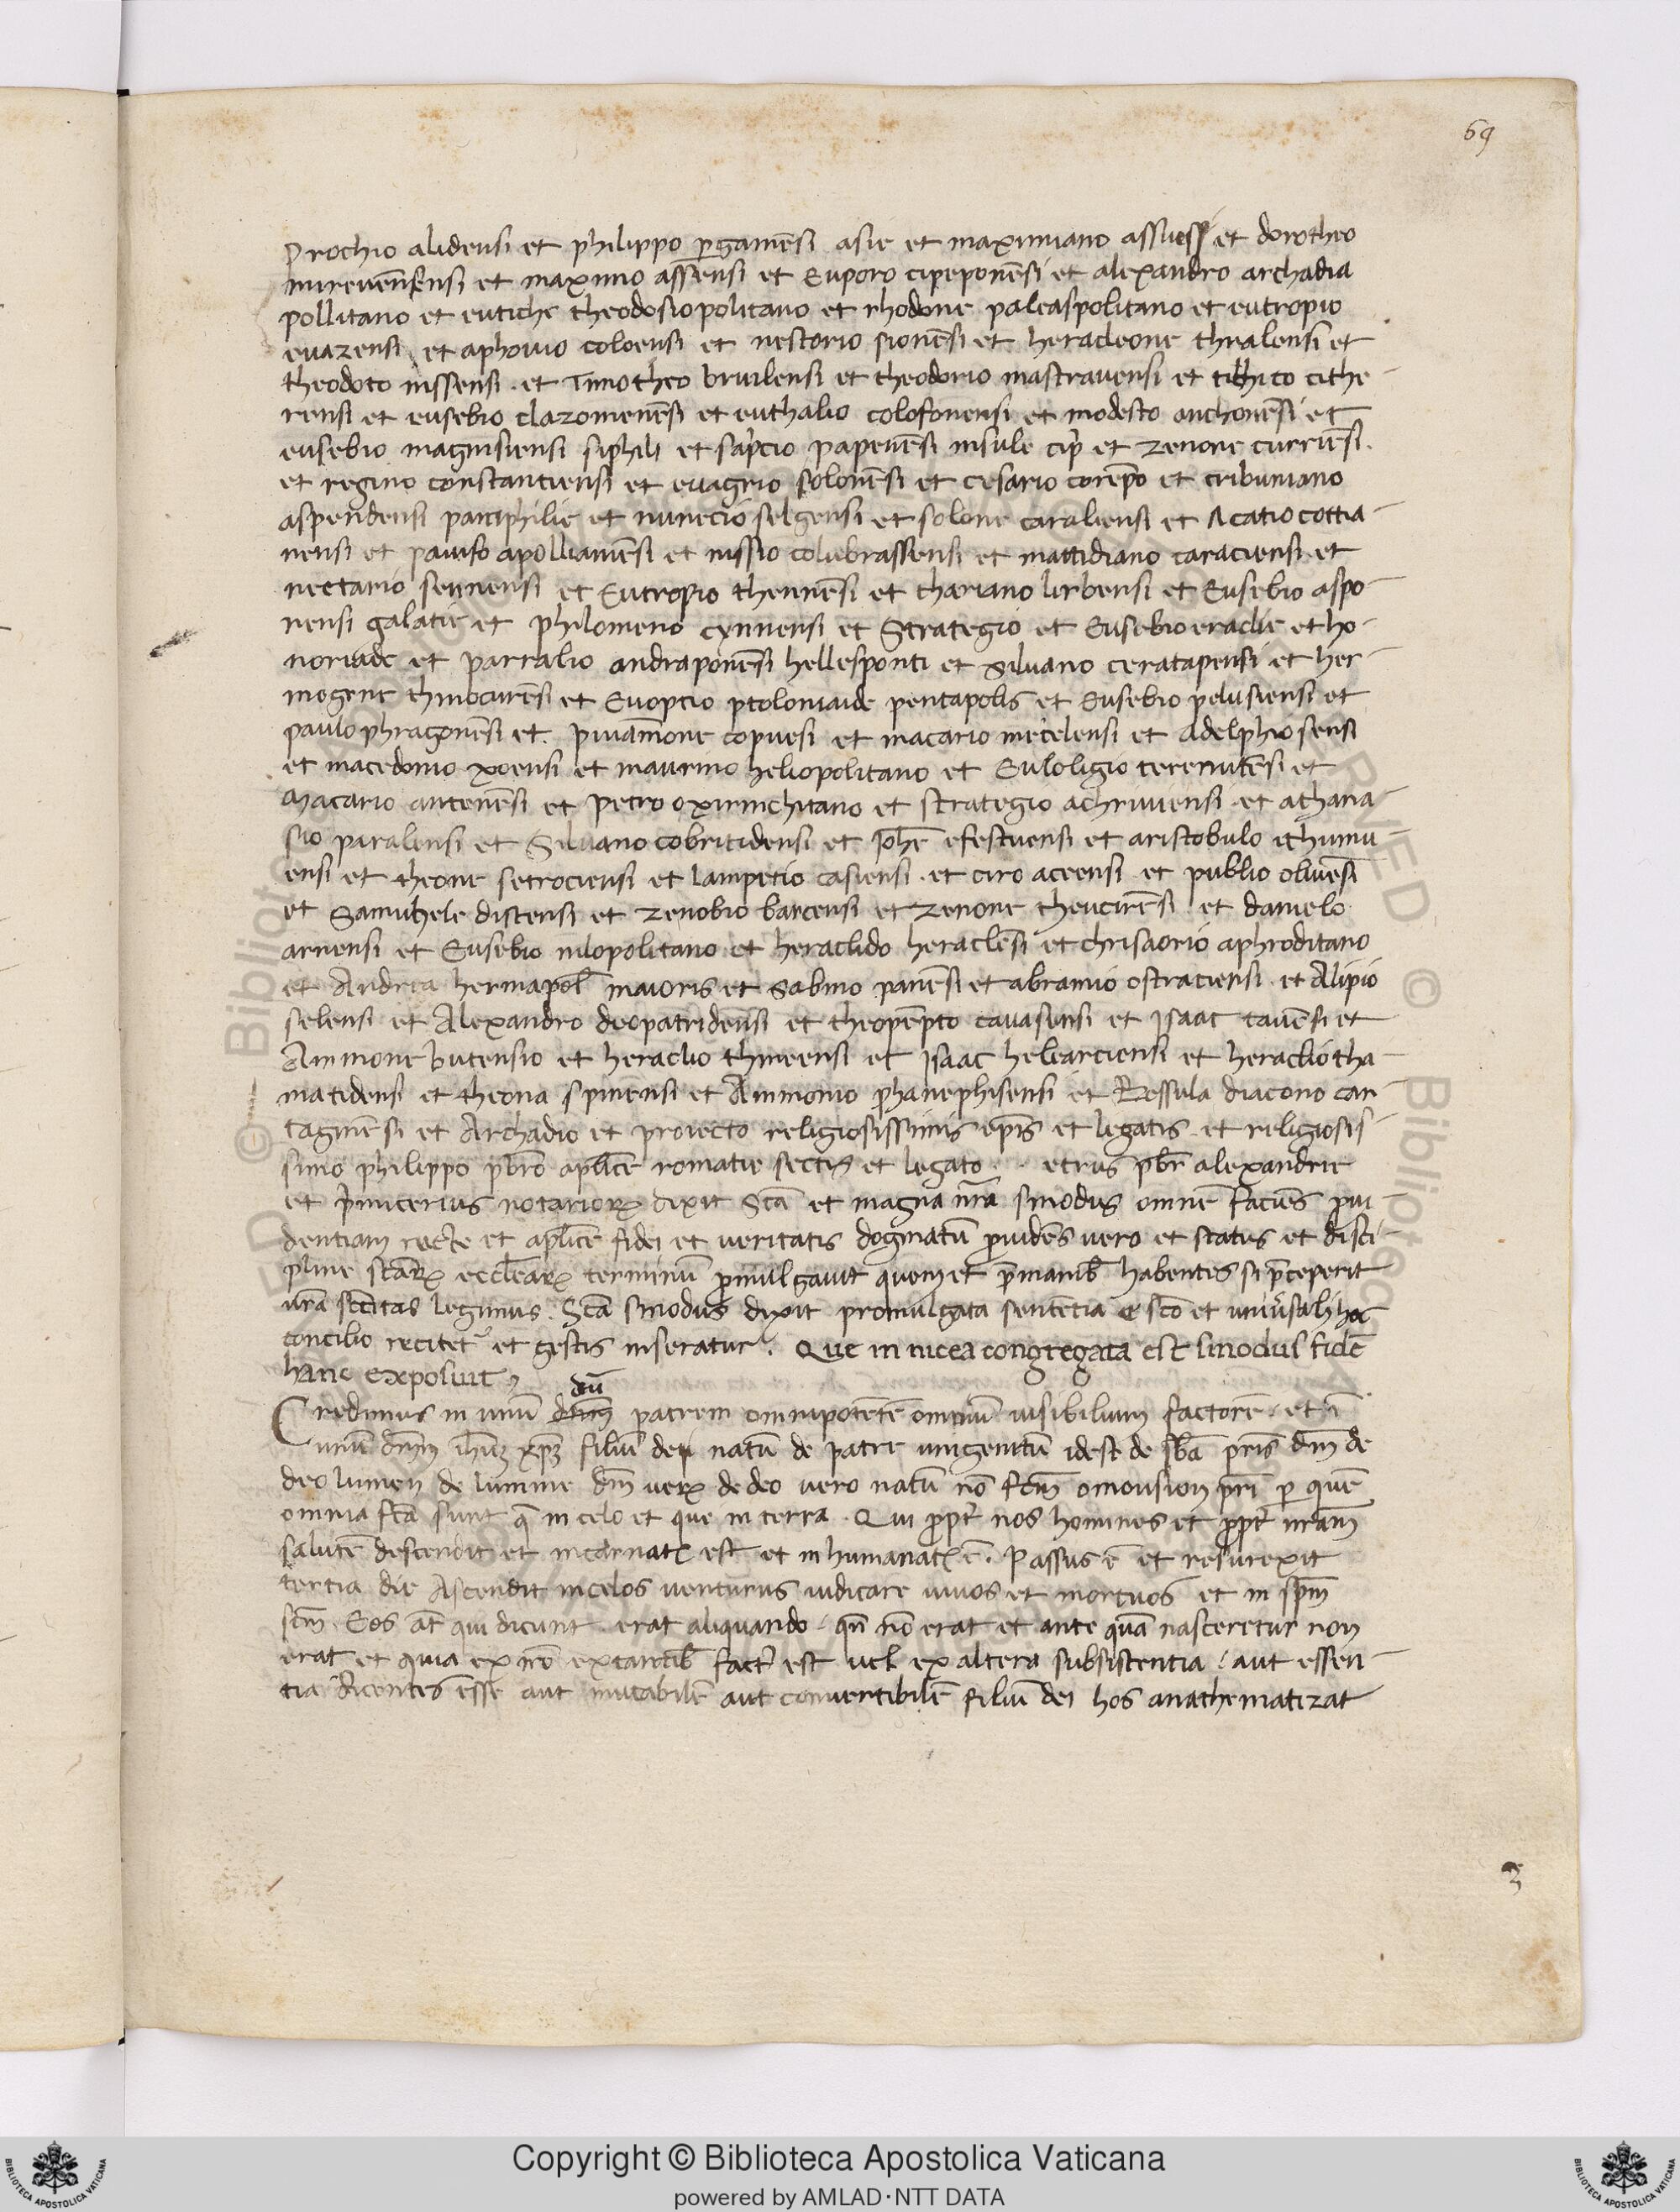 69
Prochio alidensi et philippo ꝑgamēsi asie et maximiano assuessi et dorotheo
mirevēnsensi et maximo assēnsi et Euporo cipeponēsi et alexandro archadia
pollitano et eutiche theodosiopolitano et rhodone paleaspolitano et eutropio
euazensi et aphonio coloensi et nestorio sionēsi et heracleone thralensi et
theodoto nissensi. et Timotheo briulensi et theodorio mastravensi et tithico cithe-
rensi et eusebio clazomenēsi et euthalio colofonensi et modesto anchonēsi et
eusebio magnisiensi siphili et sap̄cio papenēsi insule cip̄ et zenone curriēsi.
et regino constantiensi et euagrio solonēsi et cesario corēp̄o et tribuniano
aspendensi pamphilie et nunecio selgensi et solone caraliensi et Acatio cottia-
nensi et paniso apollianiēsi et nissio colubrassensi et mattidiano caraciensi. et
nectario sennensi et Eutropio thennēsi et thariano lirbensi et Eusebio aspo-
nensi galatie et philomeno cynnensi et Strategio et Eusebio eraclie et ho-
noriade et parralio andraponēsi hellesponti et siluano ceratapensi et her-
mogene thinocurēsi et Euopcio ptolomaide pentapolis et Eusebio pelusiensi et
paulo phragonēsi et. piuāmone copuesi et macario mecelensi et Adelphio sensi
et macedonio xoensi et maurino heliopolitano et Euloligio terenutēsi et
Macario antenēsi et petro oxirinchitano et strategio achriuiensi et athana-
sio paralensi et Siluano cobritidensi et Ioh̄e efestuensi et aristobulo ethumu-
ensi et theone setrociensi et lampetio casiensi. et ciro aceensi et publio oliuēsi
et Samuhele distensi et zenobio barcensi et zenone theucirēsi et danielo
arnensi et Eusebio nilopolitano et heraclido heraclēsi et chrisaorio aphroditano
et Andrea hermapol̄ maioris et sabino panēsi et abramio ostraciensi. et Alipio
selensi et Alexandro deopatridensi et theopēpto cauasensi et Isaac tauēsi et
Ammone butensio et heraclio thineensi et Isaac helearciensi et heraclio tha-
matidensi et theona spinensi et Ammonio phanephisensi et Bessula diacono car
taginēsi et Archadio et proiecto religiosissimis ep̄is et legatis. et religiosis-
simo philippo p̄bro ap̄lice romane sectis et legato.. etrus p̄br alexandrie
et p̄micerius notarioꝝ dixit Scā et magna n̄ra sinodus omnē faciēs p̄ui-
dentiam recte et ap̄lice fidei et veritatis dogmatū p̄uidēs vero et status et disci-
pline scāꝝ ecclēaꝝ terminū p̄mulgauit quem et p̄ manib̄ habentes si p̄ceperit
ūra sc̄titas legimus. Scā sinodus dixit promulgata sentētia e sc̄o et uniūsali hoc
concilio recitet᷑ et gestis inseratur. Que in nicea congregata est sinodus fidē
hanc exposuit
dū
Credimus in unū dnm patrem omnipotētē omniū uisibilium factorē et ī
unū dnm ihūꝫ xp̄ꝫ filiū dei natū de patre unigenitū idest de sb̄a pris d̄m de
deo lumen de lumine d̄m ueꝝ de deo uero natū nō fc̄m omousion pri ꝑ quē
omnia fc̄a sunt q̄ in celo et que in terra. Qui p̄pt̄ nos homines et p̄pt̄ n̄ram
salutē descendit et incarnatꝰ est et in humanatꝰ ē. Passus ē et resurexit
tertia die Ascendit in celos uenturus iudicare uiuos et mortuos et in sp̄m
sc̄m. Eos āt qui dicunt erat aliquando qn̄ nō erat et ante quā nasceretur non
erat et quia ex nō extantib̄ factꝰ est uel ex altera subsistentia. aut essen-
tia dicentes ēsse aut mutabilē aut conuertibilē filiū dei hos anathematizat
3
Copyright © Biblioteca Apostolica Vaticana
powered by AMLAD·NTT DATA